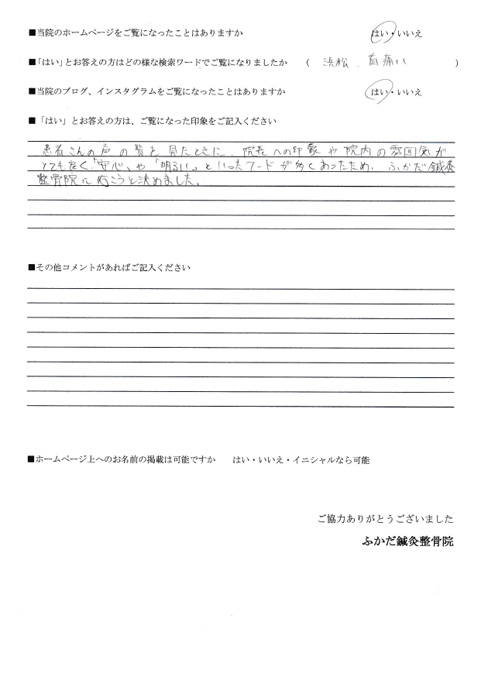 ■当院のホームページをご覧になったことはありますか　はい・いいえ
■「はい」とお答えの方はどの様な検索ワードでご覧になりましたか　（　浜松　首痛い　）
■当院のブログ、インスタグラムをご覧になったことはありますか　はい・いいえ
■「はい」とお答えの方は、ご覧になった印象をご記入ください
患者さんの声の覧を見たときに、院長への印象や院内の雰囲気が
とても良く「安心」や「明るい」といったワードが多くあったため、ふかだ鍼灸
整骨院に行こうと決めました。
■その他コメントがあればご記入ください
■ホームページ上へのお名前の掲載は可能ですか　はい・いいえ・イニシャルなら可能
ご協力ありがとうございました
ふかだ鍼灸整骨院